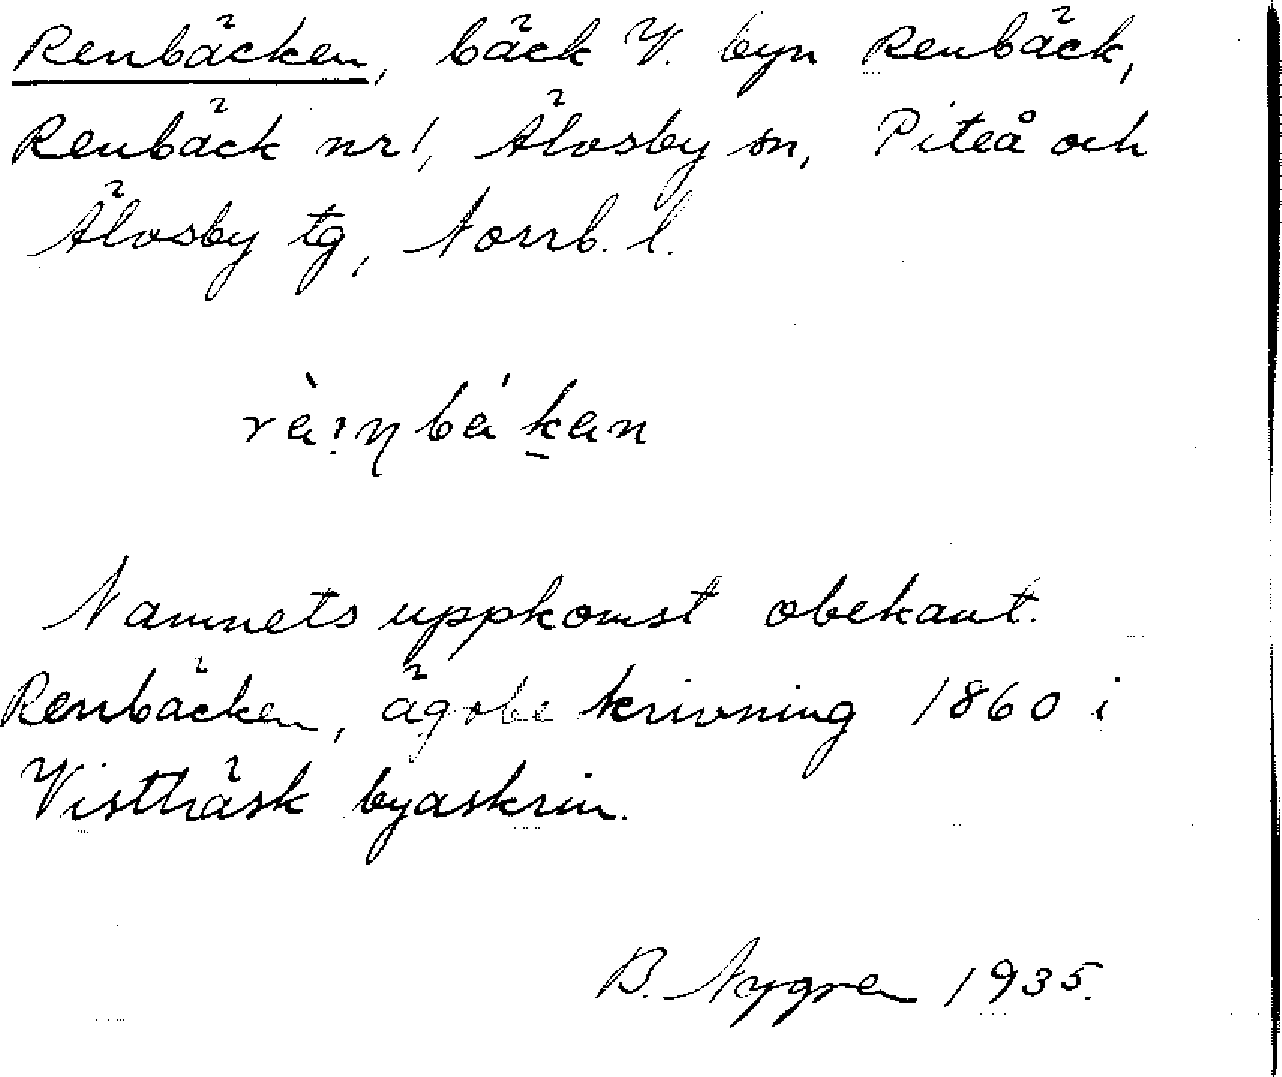 Renbäcken, bäck V. byn Renbäck,
Renbäck nr 1, Älvsby sn, Piteå och
Älvsby tg, Norrb. l.
rὰ:ŋbά kan
Namnets uppkomst obekant.
Renbäcken, ägobeskrivning 1860 i
Vistträsk byaskrin.
B. Nygren 1935.